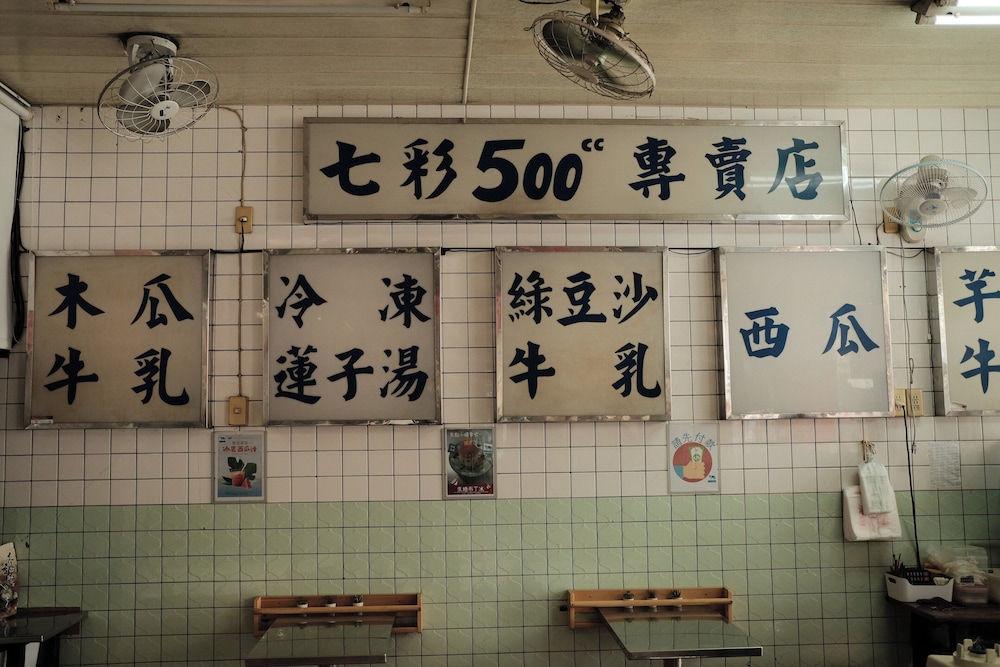 七彩500cc 專賣店
木瓜
牛乳
冷凍
蓮子湯
綠豆沙
牛乳
西瓜
芋
牛
冰果西瓜汁
請先付款